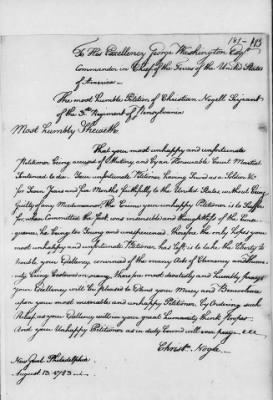 147 - 113
To His Excellency George Washington Esqr
Commander in Chief of the Forces of the United States
of America —
The most Humble Petition of Christian Nagell Serjeant
of the 3d Regiment of Pensylvania
Most Humbly Sheweth
That your most unhappy and unfortunate
Petitioner being accused of Mutiny and by an Honourable Court Martial
Sentenced to die. Your unfortunate Petitioner having Served as a Soldier &c
for Seven Years and five Months faithfully to the United States without being
guilty of any Misdemeanor. The Crime your unhappy Petitioner is to Suffer
for when Committed the fact was insensible and thoughtless of the Conse-
quence, He being too Young and unexperienced. therefore the only hopes your
most unhappy and unfortunate Petitioner has left is to take the liberty to
trouble your Excellency, convinced of the many Acts of Clemency and Huma-
nity being bestowed on many, Therefore most devoutly and humbly prays
Your Excellency will be pleased to Extend your Mercy and Benevolence
upon your most miserable and unhappy Petitioner by Ordering such
Relief as your Excellency will in your great humanity think proper
And your Unhappy Petitioner as in duty bound will ever pray &c
Christn Nagle
New Goal Philadelphia
August 13. 1783